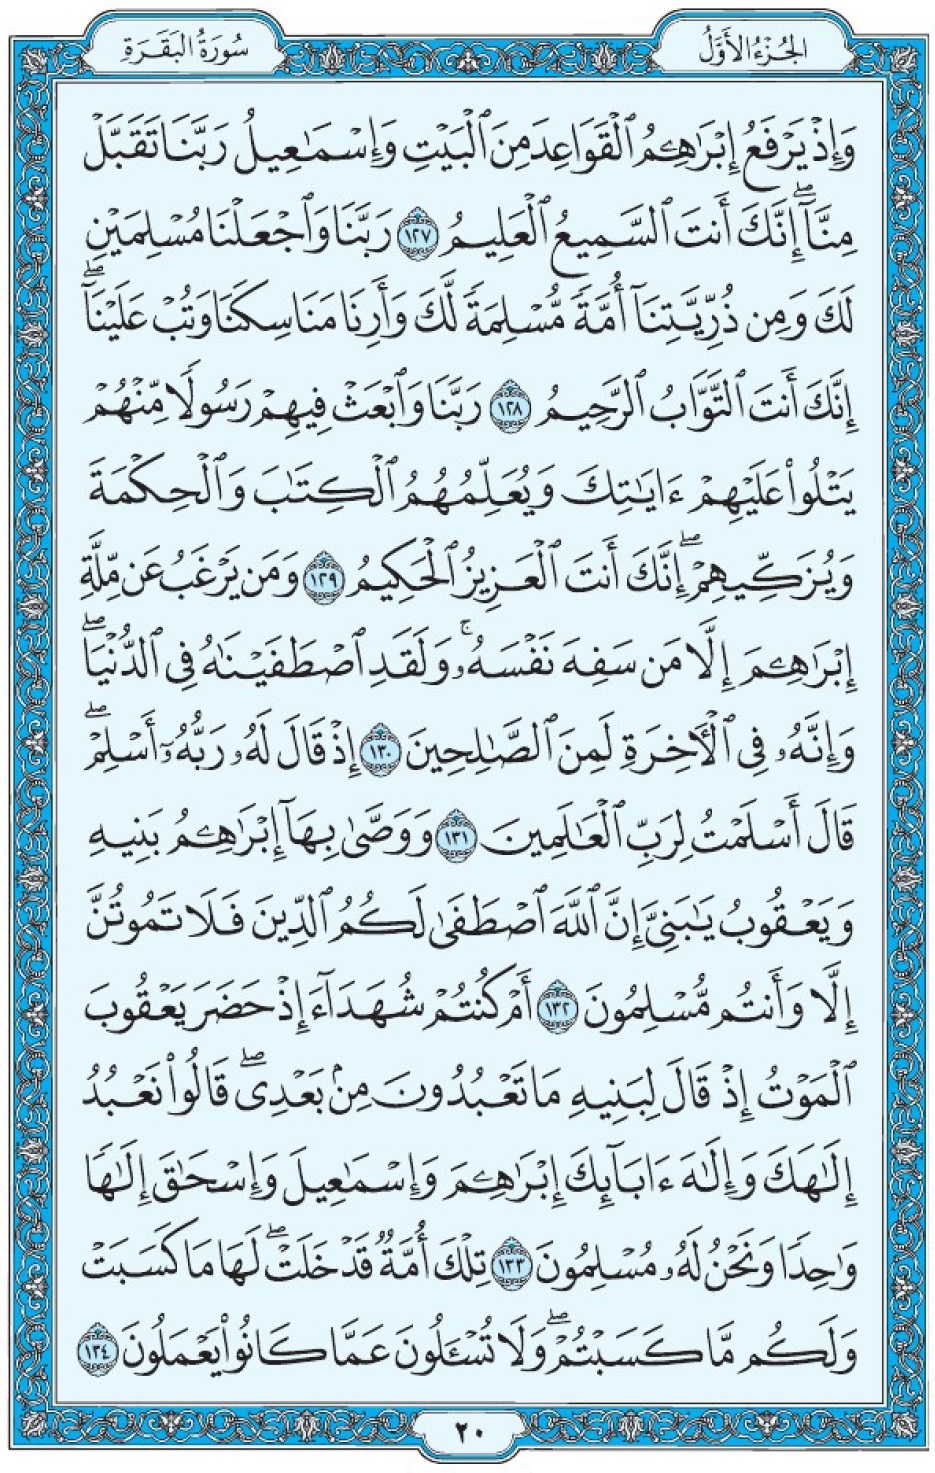 الجُزْءُ الأَوَّلُ
سُورَةُ البَقَرَةِ
وَإِذْ يَرْفَعُ إِبْرَٰهِـۧمُ ٱلْقَوَاعِدَ مِنَ ٱلْبَيْتِ وَإِسْمَٰعِيلُ رَبَّنَا تَقَبَّلْ
مِنَّآۖ إِنَّكَ أَنتَ ٱلسَّمِيعُ ٱلْعَلِيمُ ١٢٧ رَبَّنَا وَٱجْعَلْنَا مُسْلِمَيْنِ
لَكَ وَمِن ذُرِّيَّتِنَآ أُمَّةً مُّسْلِمَةً لَّكَ وَأَرِنَا مَنَاسِكَنَا وَتُبْ عَلَيْنَآۖ
إِنَّكَ أَنتَ ٱلتَّوَّابُ ٱلرَّحِيمُ ١٢٨ رَبَّنَا وَٱبْعَثْ فِيهِمْ رَسُولًا مِّنْهُمْ
يَتْلُوا۟ عَلَيْهِمْ ءَايَٰتِكَ وَيُعَلِّمُهُمُ ٱلْكِتَٰبَ وَٱلْحِكْمَةَ
وَيُزَكِّيهِمْۖ إِنَّكَ أَنتَ ٱلْعَزِيزُ ٱلْحَكِيمُ ١٢٩ وَمَن يَرْغَبُ عَن مِّلَّةِ
إِبْرَٰهِـۧمَ إِلَّا مَن سَفِهَ نَفْسَهُۥۚ وَلَقَدِ ٱصْطَفَيْنَٰهُ فِى ٱلدُّنْيَاۖ
وَإِنَّهُۥ فِى ٱلْـَٔاخِرَةِ لَمِنَ ٱلصَّٰلِحِينَ ١٣٠ إِذْ قَالَ لَهُۥ رَبُّهُۥٓ أَسْلِمْۖ
قَالَ أَسْلَمْتُ لِرَبِّ ٱلْعَٰلَمِينَ ١٣١ وَوَصَّىٰ بِهَآ إِبْرَٰهِـۧمُ بَنِيهِ
وَيَعْقُوبُ يَٰبَنِىَّ إِنَّ ٱللَّهَ ٱصْطَفَىٰ لَكُمُ ٱلدِّينَ فَلَا تَمُوتُنَّ
إِلَّا وَأَنتُم مُّسْلِمُونَ ١٣٢ أَمْ كُنتُمْ شُهَدَآءَ إِذْ حَضَرَ يَعْقُوبَ
ٱلْمَوْتُ إِذْ قَالَ لِبَنِيهِ مَا تَعْبُدُونَ مِنۢ بَعْدِىۖ قَالُوا۟ نَعْبُدُ
إِلَٰهَكَ وَإِلَٰهَ ءَابَآئِكَ إِبْرَٰهِـۧمَ وَإِسْمَٰعِيلَ وَإِسْحَٰقَ إِلَٰهًا
وَٰحِدًا وَنَحْنُ لَهُۥ مُسْلِمُونَ ١٣٣ تِلْكَ أُمَّةٌ قَدْ خَلَتْۖ لَهَا مَا كَسَبَتْ
وَلَكُم مَّا كَسَبْتُمْۖ وَلَا تُسْـَٔلُونَ عَمَّا كَانُوا۟ يَعْمَلُونَ ١٣٤
٢٠